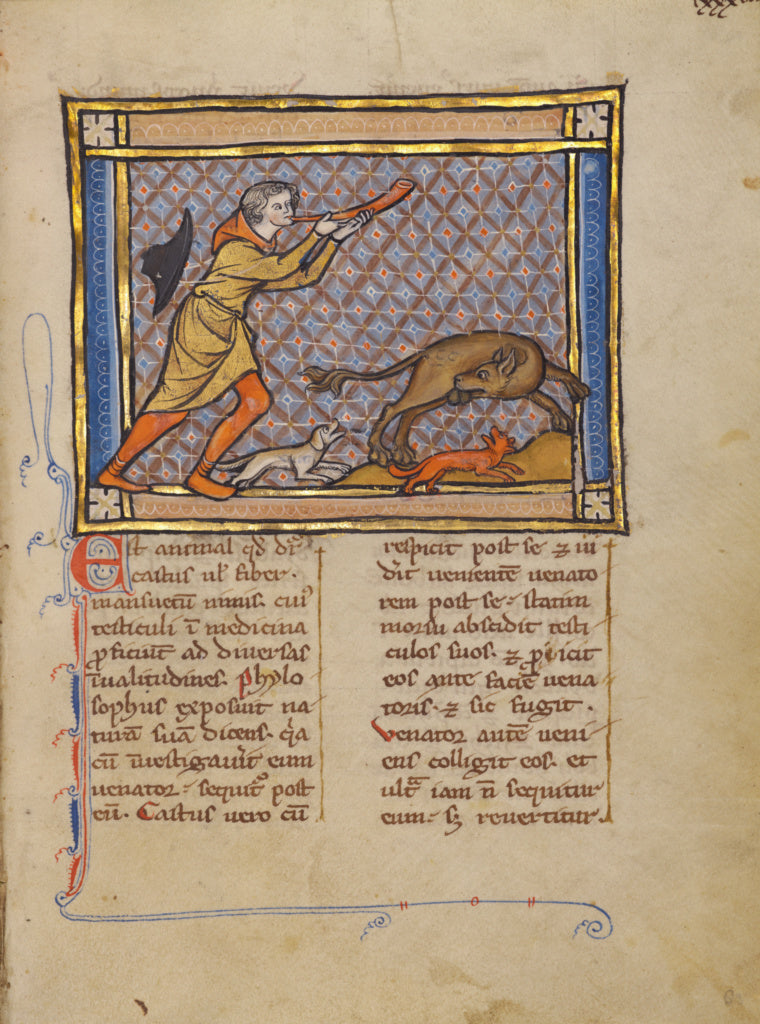 Est animal qd̄ dr̄
castus ul' fiber.
mansuetū nimis. cui᾽
testiculi ī medicina
ꝓficiūt ad diversas
īvalitudines. phylo
sophus exposuit na
turā suā dicens. qͥa
cū īvestigaverit eum
venator. sequit᾽ post
eū. Castus vero cū
respicit post se ⁊ vi
dīt venientē venato
rem post se. statim
morsu abscidit testi
culos suos. ⁊ ꝓicit
eos ante faciē vena
toris. ⁊ sic fugit.
Venator autē veni
ens colligit eos. et
ultͣ iam n̄ sequitur
eum. sꝫ revertitur.